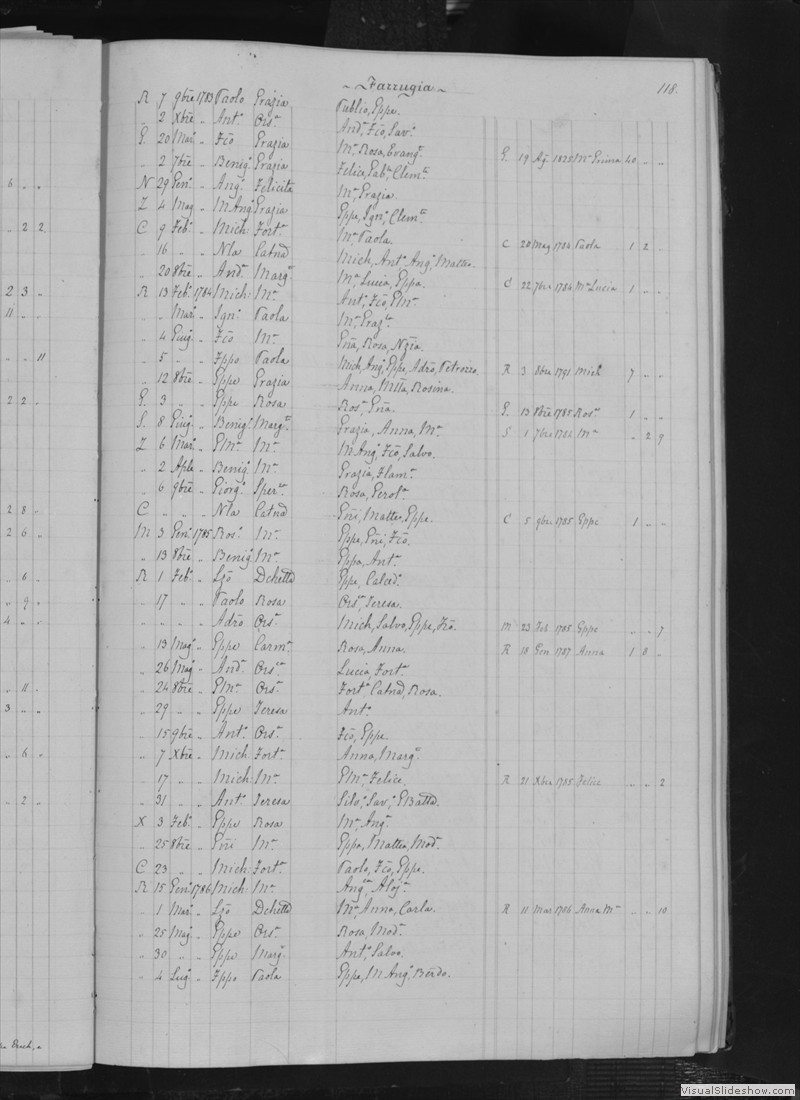 Farrugia
118.
R 7 9bre 1783 Paolo Grazia Publio, Eppe.
" 2 Xbre " Ant° Ors.ª And.ª, Fco, Sav.ª
G. 20 Mar. " Fco Grazia M.ª Rosa, Evang.ª G. 19 Ag. 1825 M.ª 40 " "
" 2 7bre " Benig.ª Grazia Felice, Gab.le, Clem.te
6 " " N 29 Gen.° " Ang.° Felicita M.ª, Grazia
Z 4 Mag " M Ang.° Grazia Eppe, Ign.°, Clem.te
" 2 2 C 9 Feb.° " Mich: Fort.ª M.ª Paola.
" 16 " " Nla Catnd Mich, Ant.ª Ang.ª, Matteo. C 20 Mag 1784 Paola " 1 2 "
" 20 8bre " And.ª Marg.ª M.ª, Lucia, Eppa.
2 3 " R 13 Feb.° 1784 Mich: M.ª Ant.°, Fco, Elm.ª C 22 7bre 1784 M.ª Lucia 1 " "
11 " " " " Mar. " Ign.° Paola M.ª, Graz.ª
" 4 Giug. " Fco M.ª Gna, Rosa, Nzia.
" " 11 " 5 " " Fppo Paola Mich, Ang.°, Eppe, Adro, Petrozzo. R 3 8bre 1791 Mich 7 " "
" 12 8bre " Eppe Grazia Anna, Mtta, Rosina.
2 2 " G. 3 " " Eppe Rosa Ros.ª, Gna. G. 13 8bre 1785 Ros.ª 1 " "
S. 8 Giug. " Benig.° Marg.ª Grazia, Anna, M.ª S 1 7bre 1784 M.ª " 2 9
Z 6 Mar. " Elm.° M.ª M Ang.°, Fco, Salvo.
" 2 Aple " Benig.° M.ª Grazia, Flam.ª
" 6 9bre " Giorg.° Sper.za Rosa, Gerol.ª
2 8 " C " " " Nla Catnd Gni, Matteo, Eppe. C 5 9bre 1785 Eppe 1 " "
2 6 " M 3 Gen.° 1785 Ros.° M.ª Eppe, Gni, Fco.
" 13 8bre " Benig.° M.ª Eppa, Ant.ª
" 6 " R 1 Feb.° " Lzo Dchetta Eppe, Calced.ª
" 9 " " 17 " " Paolo Rosa Ors.ª, Teresa.
4 " " " " " " Adro Ors.ª Mich, Salvo, Eppe, Fco. M 23 Feb 1785 Eppe " " 7
" 13 Mag.° " Eppe Carm.ª Rosa, Anna. R 18 Gen 1787 Anna 1 8 "
" 26 Mag.° " And.ª Ors.ª Lucia, Fort.ª
" 11 " " 24 8bre " Elm.° Ors.ª Fort.ª, Catnd, Rosa.
3 " " " 29 " " Eppe Teresa Ant.°
" 15 9bre " Ant.° Ors.ª Fco, Eppe.
" 6 " " 7 Xbre " Mich: Fort.ª Anna, Marg.ª
" 17 " " Mich: M.ª Elm.ª, Felice. R 21 Xbre 1785 Felice " " 2
" 2 " " 31 " " Ant.° Teresa Silv.°, Sav.°, GBatta.
X 3 Feb.° " Eppe Rosa M.ª, Ang.ª
" 25 8bre " Gni M.ª Eppa, Matteo, Mod.ª
C 23 " " Mich: Fort.ª Paolo, Fco, Eppa.
R 15 Gen.° 1786 Mich: M.ª Ang.ca, Aloj.ª
" 1 Mar. " Lzo Dchetta M.ª, Anna, Carla. R 11 Mar 1786 Anna M.ª " " 10
" 25 Mag. " Eppe Ors.ª Rosa, Mod.ª
" 30 " " Eppe Marg.ª Ant.°, Salvo.
" 4 Lug. " Fppo Paola Eppe, M Ang.°, Berdo.
VisualSlideshow.com